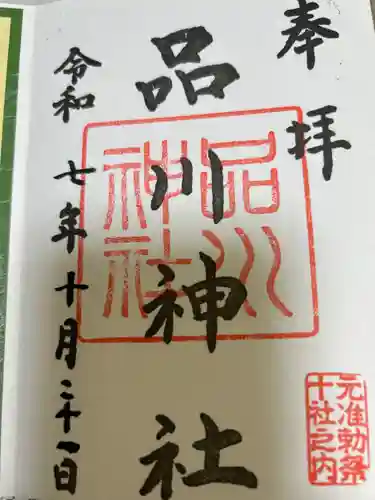 奉拝
品川神社
品川神社
元准勅祭
十社之内
令和七年十月二十一日